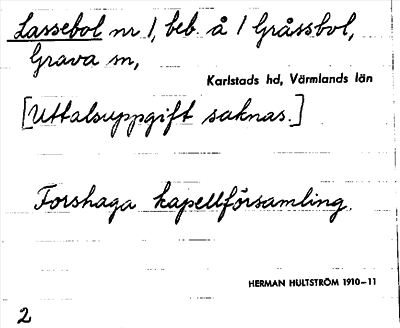 Lassebol nr 1, beb. å 1 Gråssbol,
Grava sn,
Karlstads hd, Värmlands län
[Uttalsuppgift saknas.]
Forshaga kapellförsamling.
HERMAN HULTSTRÖM 1910-11
2